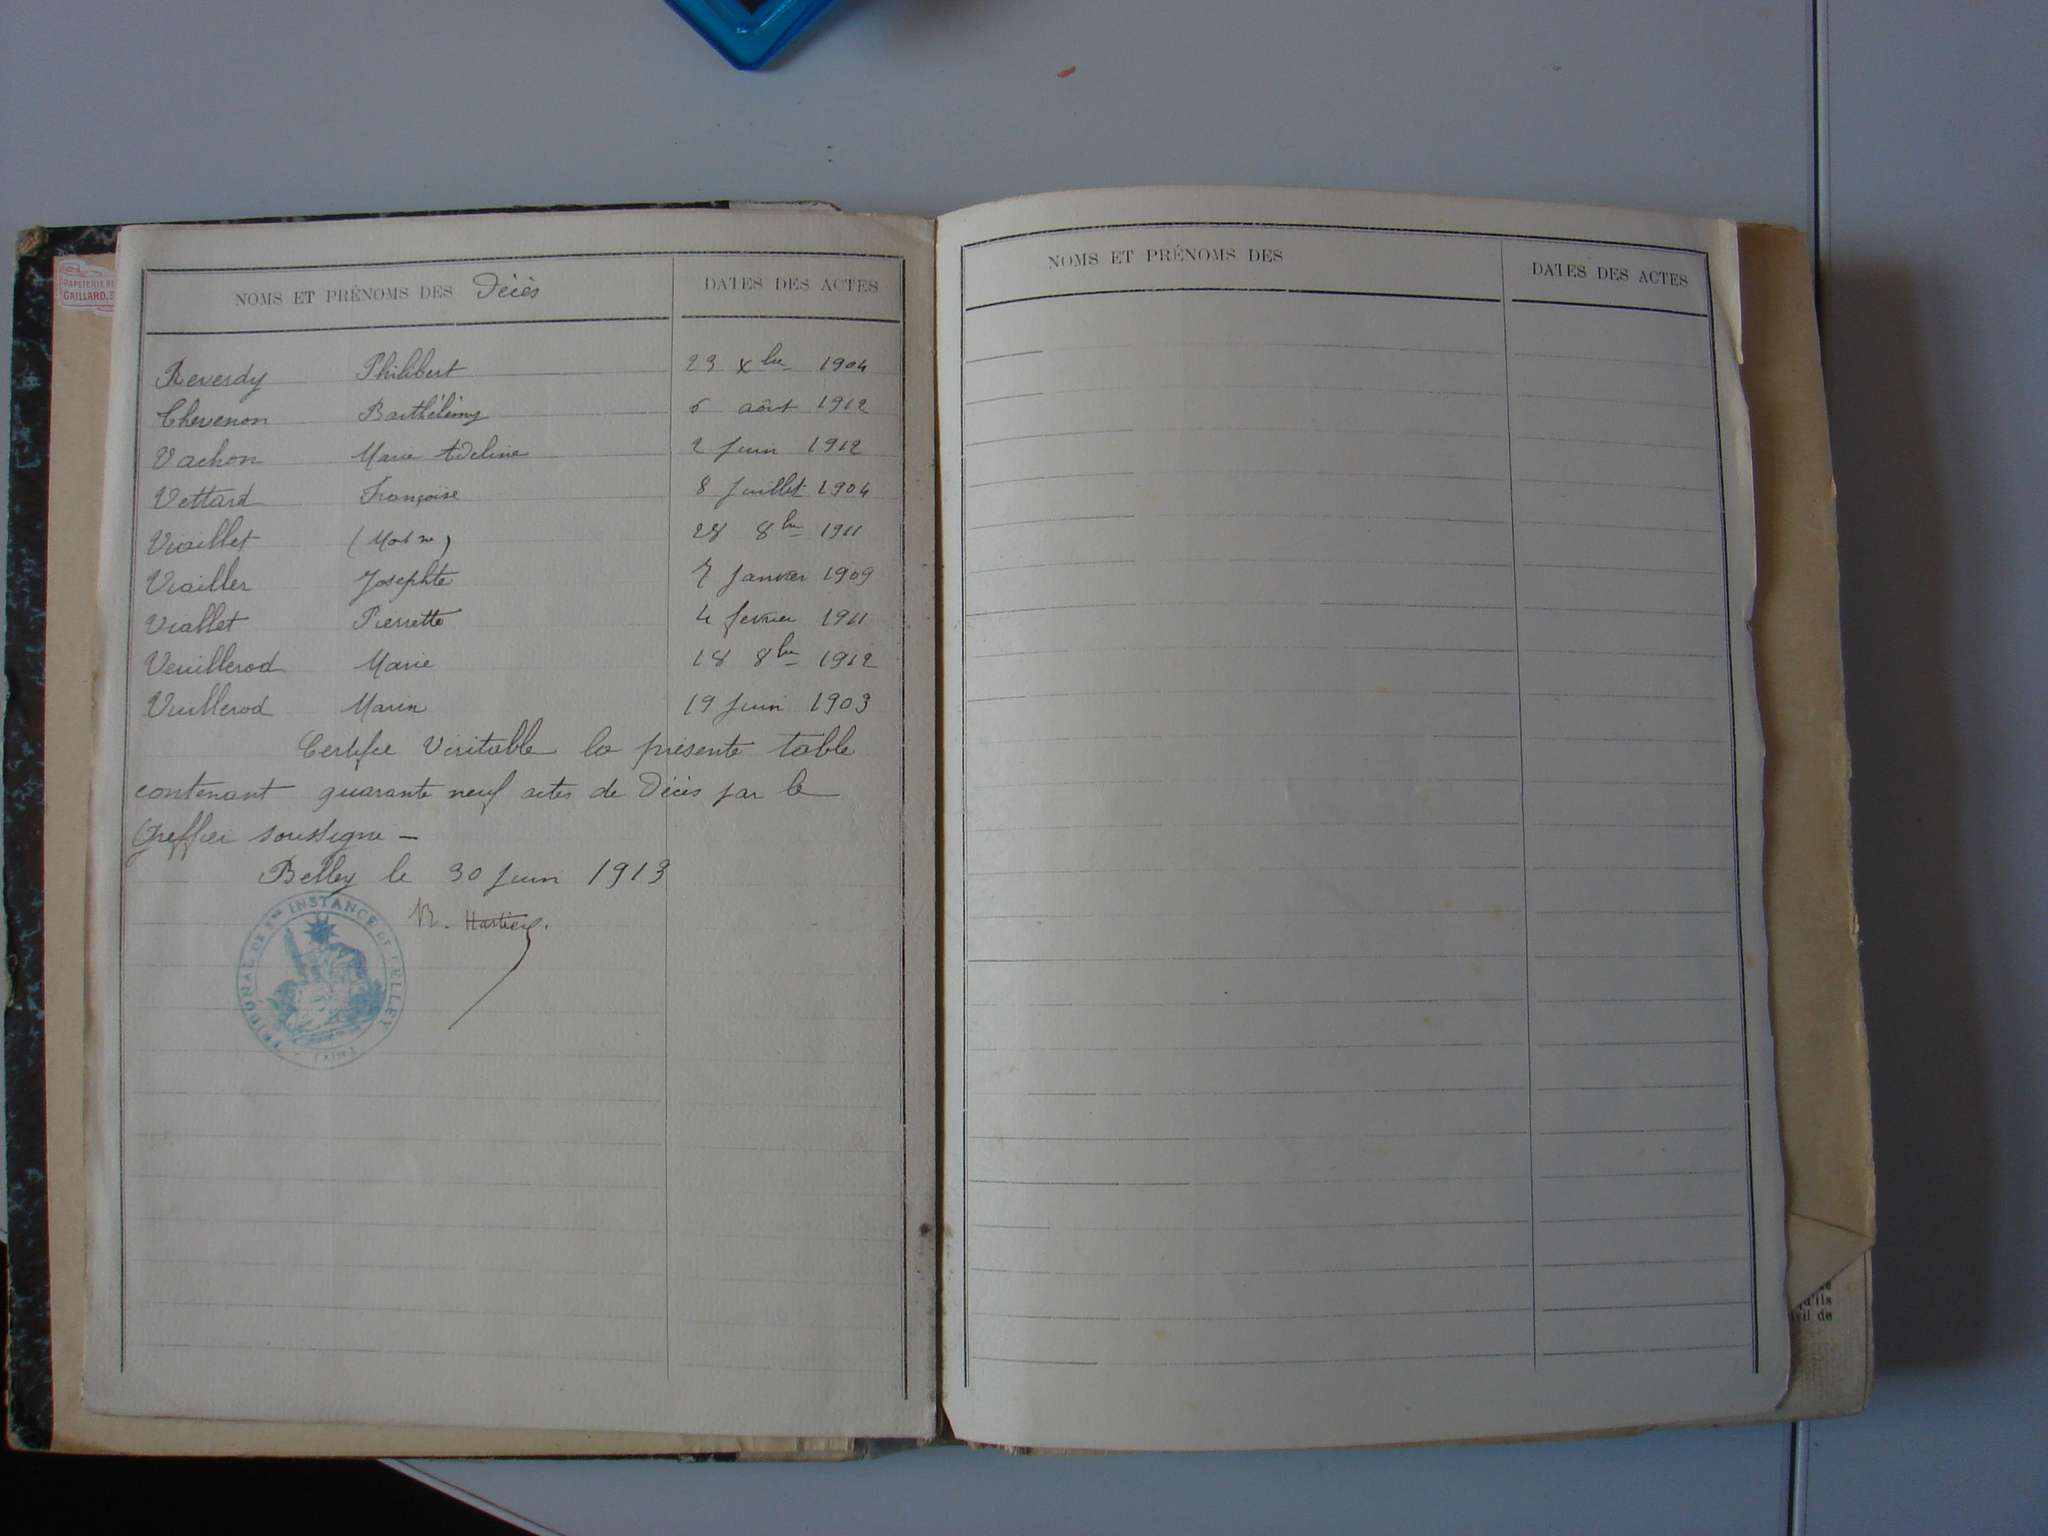 PAPETERIE
GAILLARD
NOMS ET PRÉNOMS DES Décès DATES DES ACTES
Reverdy Philibert 23 Xbre 1904
Chevenon Barthélémy 6 août 1912
Vachon Marie Adeline 2 Juin 1912
Vettard Françoise 8 Juillet 1904
Viaillet (Mort né) 28 8bre 1911
Viailler Josephte 7 Janvier 1909
Viallet Pierrette 4 fevrier 1911
Veuillerod Marie 18 8bre 1912
Vuillerod Marin 19 Juin 1903
Certifie Véritable la présente table
contenant quarante neuf actes de Décès par le
Greffier soussigné -
Belley le 30 Juin 1913
TRIBUNAL DE 1re INSTANCE DE BELLEY
(AIN)
NOMS ET PRÉNOMS DES DATES DES ACTES
qu'ils
de